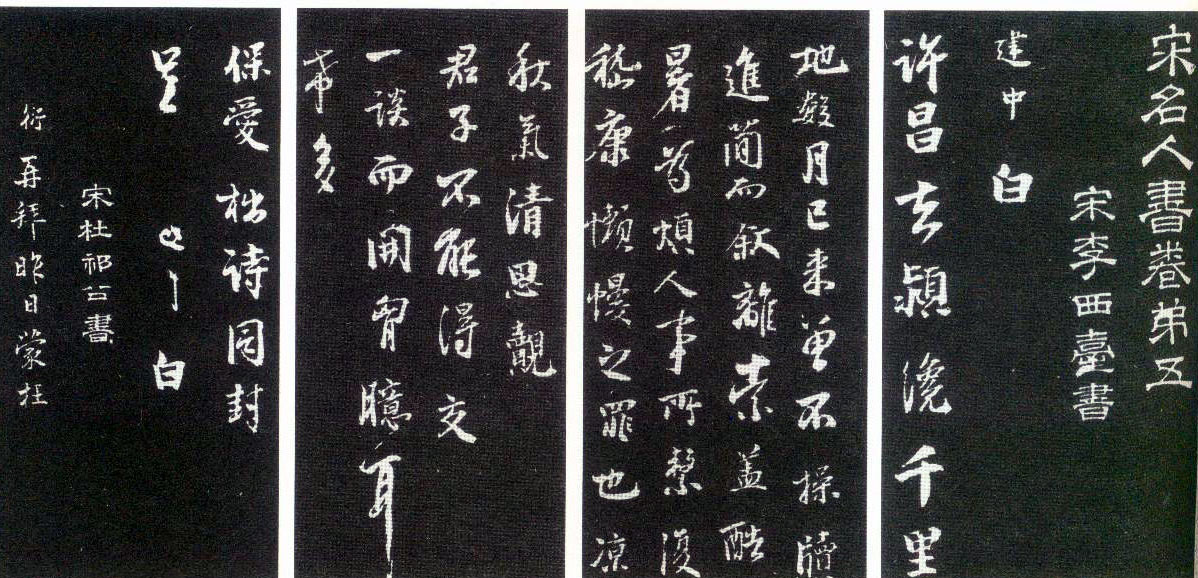 宋名人書卷第五
宋李西臺書
建中 白
許昌去潁纔千里
地數月已来曽不操牘
進簡而叙離索蓋酷
暑䓁煩人事所縈復
嵇康懶慢之罪也凉
秋氣清思覿
君子不能得交
一談而開胷臆耳
希多
保愛 拙诗同封
呈 白
宋杜祁公書
衍再拜昨日蒙枉